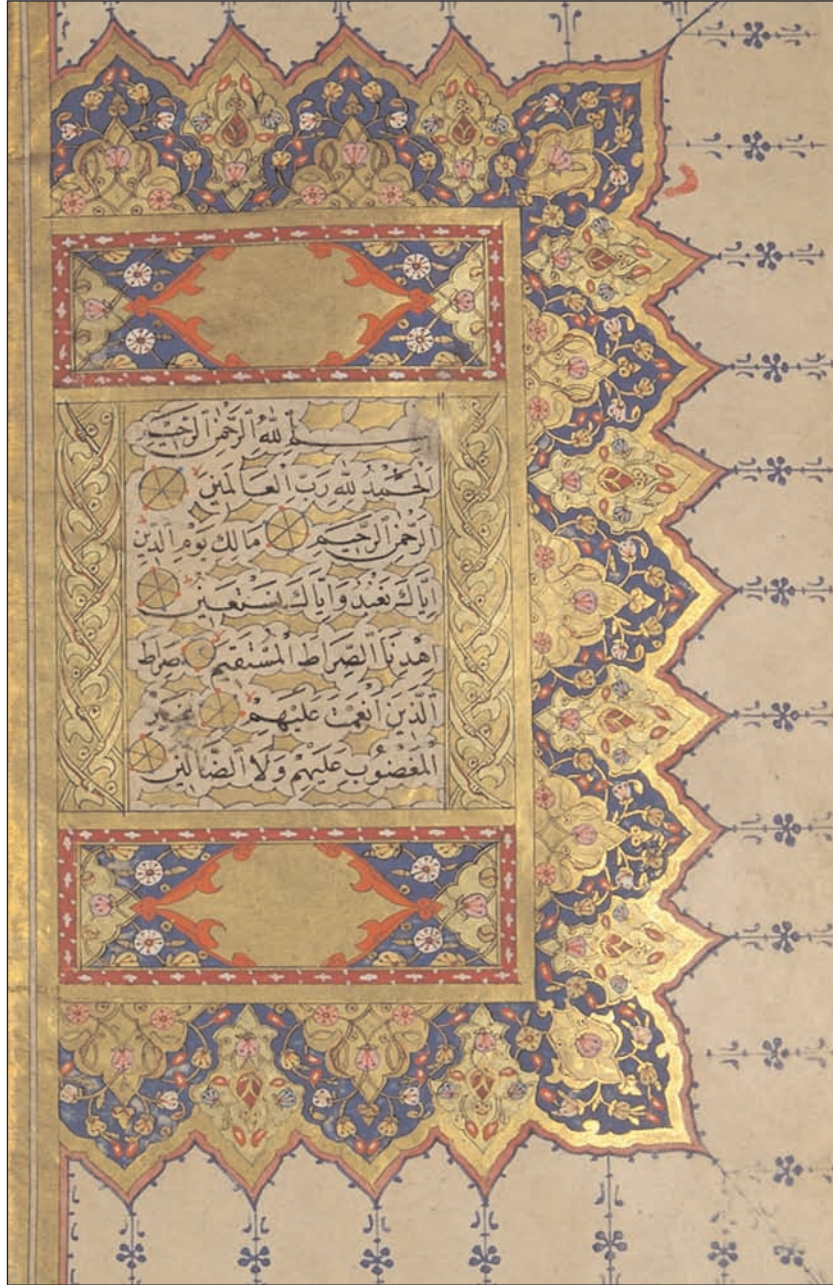 بِسْمِ ٱللّٰهِ ٱلرَّحْمٰنِ ٱلرَّحِيمِ
اَلْحَمْدُ لِلّٰهِ رَبِّ ٱلْعَالَمِينَ
اَلرَّحْمٰنِ ٱلرَّحِيمِ مَالِكِ يَوْمِ ٱلدِّينِ
اِيَّاكَ نَعْبُدُ وَاِيَّاكَ نَسْتَعِينُ
اِهْدِنَا ٱلصِّرَاطَ ٱلْمُسْتَقِيمَ صِرَاطَ
ٱلَّذِينَ اَنْعَمْتَ عَلَيْهِمْ غَيْرِ
ٱلْمَغْضُوبِ عَلَيْهِمْ وَلَا ٱلضَّالِّينَ